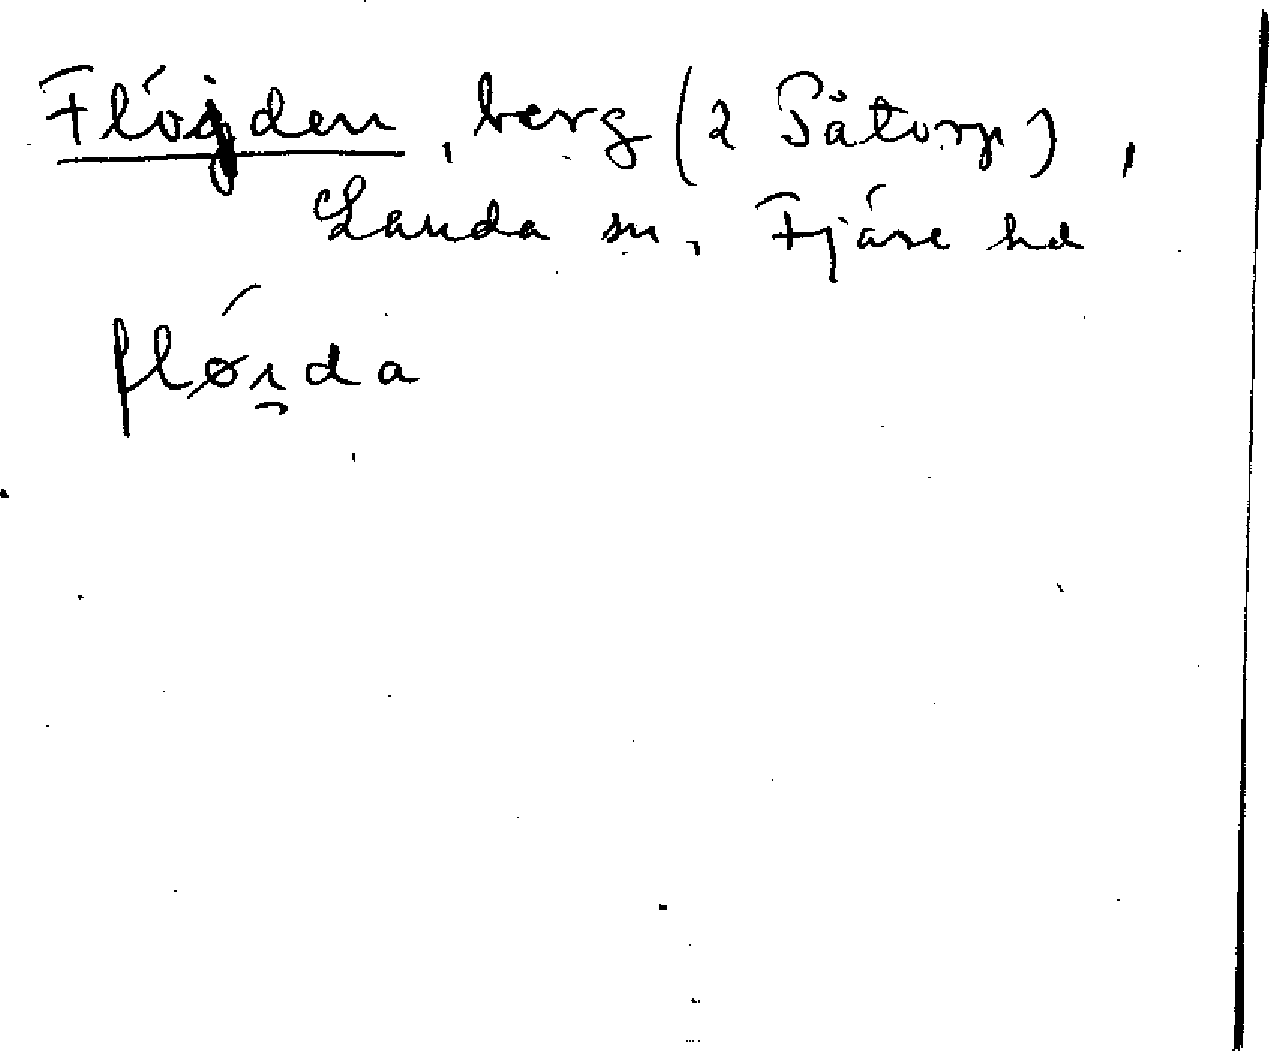 Flöjden, berg (2 Såtorp),
Landa sn, Fjäre hd
flǿi̯da